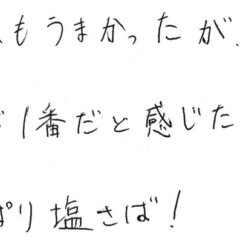 もうまかったが
1番だと感じた
ぱり塩さば!